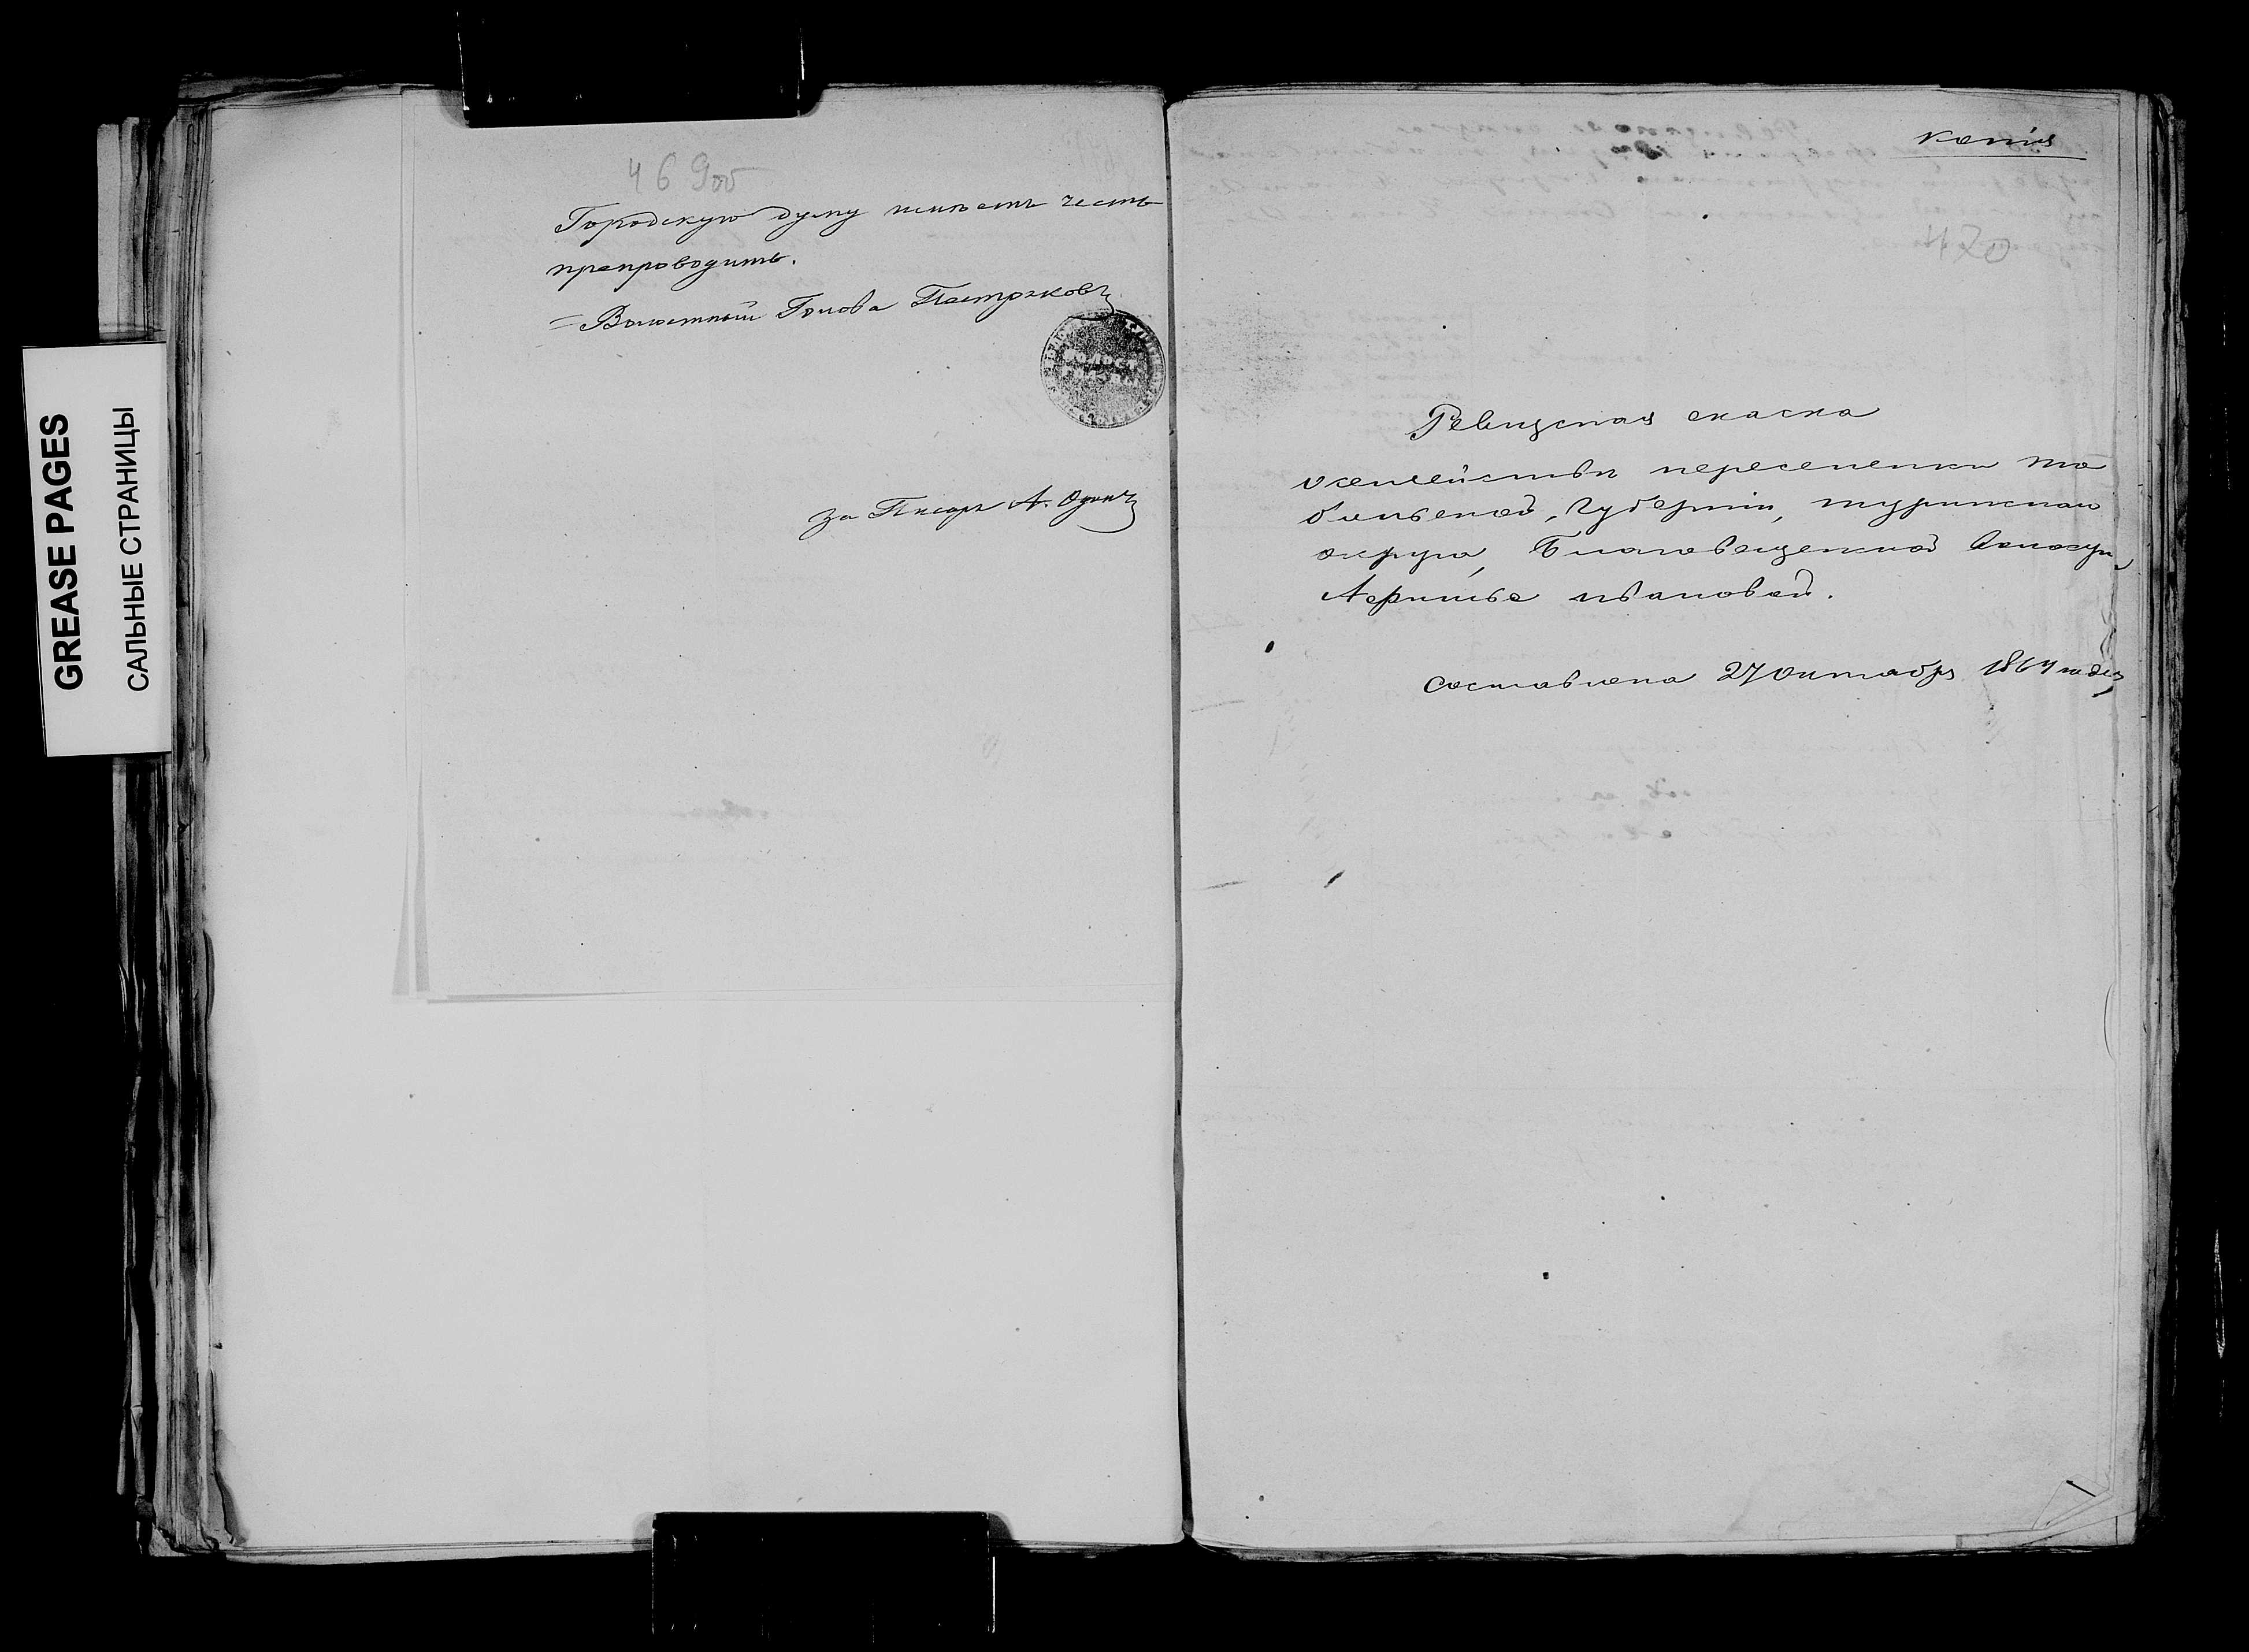 GREASE PAGES
САЛЬНЫЕ СТРАНИЦЫ
469об
Городскую думу имѣетъ честь
препроводить.
Волостный Голова Пастряковъ
за Писаря А.
копія
470
Ревизская скаска
о семействѣ переселенки То
больской, Губерніи, туринскаго
округа, Благовещенской волости,
ивановой.
Составлена 27 Октября 1864 года